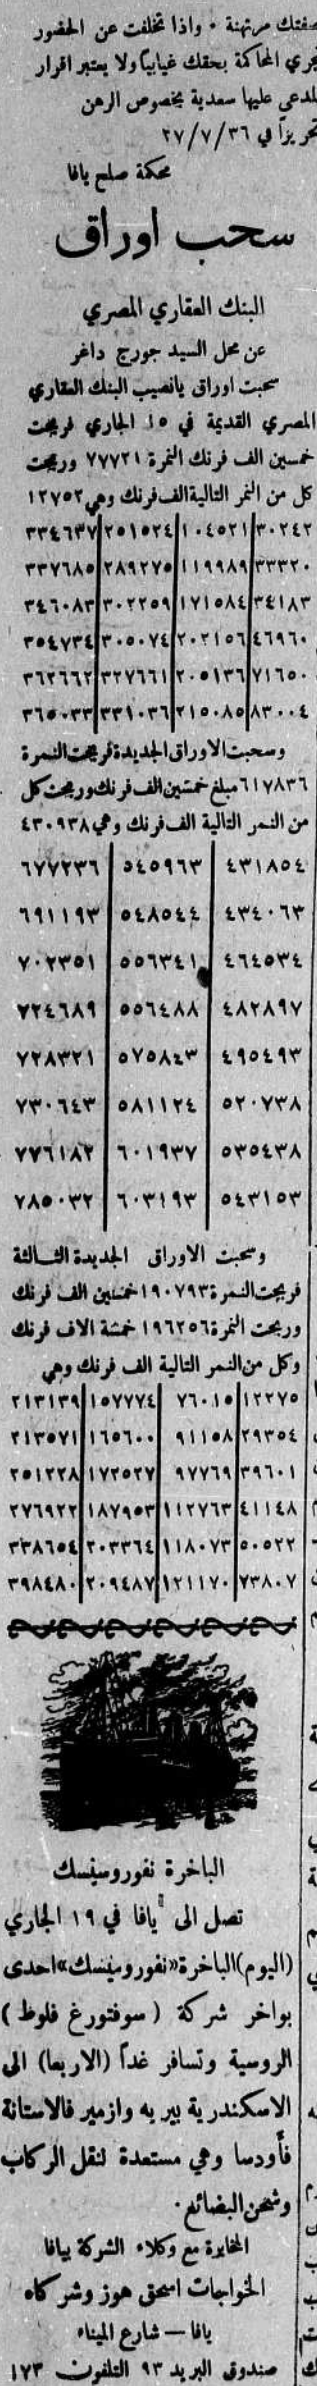 صفتك مرتهنة ٠ واذا تخلفت عن الحضور
تجري المحاكمة بحقك غيابياً ولا يعتبر اقرار
المدعى عليها سعدية بخصوص الرهن
تحريراً في ٢٧/٧/٣٦
محكمة صلح يافا
سحب اوراق
البنك العقاري المصري
عن محل السيد جورج داغر
سحبت اوراق يانصيب البنك العقاري
المصري القديمة في ١٥ الجاري فربحت
خمسين الف فرنك النمرة ٧٧٧٢١ وربحت
كل من النمر التالية الف فرنك وهي ١٢٧٥٢
٣٠٢٤٢ ١٠٤٥٢١ ٢٥١٥٢٤ ٣٣٤٦٣٧
٣٣٣٢٠ ١١٩٩٨٩ ٢٨٩٢٧٥ ٣٣٧٦٨٥
٣٤١٨٣ ١٧١٥٨٤ ٣٠٢٢٥٩ ٣٤٦٠٨٣
٤٦٩٦٠ ٢٠٢١٥٦ ٣٠٥٠٧٤ ٣٥٤٧٣٤
٧١٦٥٠ ٢٠٥١٣٦ ٣٢٧٦٦١ ٣٦٢٦٦٢
٨٣٠٠٤ ٢١٥٠٨٥ ٣٣١٠٣٦ ٣٦٥٠٣٣
وسحبت الاوراق الجديدة فربحت النمرة
٦١٧٨٣٦ مبلغ خمسين الف فرنك وربحت كل
من النمر التالية الف فرنك وهي ٤٣٠٩٣٨
٤٣١٨٥٤ ٥٤٥٩٦٣ ٦٧٧٢٣٦
٤٣٤٠٦٣ ٥٤٨٥٤٤ ٦٩١١٩٣
٤٦٤٥٣٤ ٥٥٦٣٤١ ٧٠٢٣٥١
٤٨٢٨٩٧ ٥٥٦٤٨٨ ٧٢٤٦٨٩
٤٩٥٤٩٣ ٥٧٥٨٤٣ ٧٢٨٣٢١
٥٢٠٧٣٨ ٥٨١١٢٤ ٧٣٠٦٤٣
٥٣٥٤٣٨ ٦٠١٩٣٧ ٧٧٦١٨٢
٥٤٣١٥٣ ٦٠٣١٩٣ ٧٨٥٠٣٢
وسحبت الاوراق الجديدة الثالثة
فربحت النمرة ١٩٠٧٩٣ خمسين الف فرنك
وربحت النمرة ١٩٦٢٥٦ خمسة الاف فرنك
وكل من النمر التالية الف فرنك وهي
١٢٢٧٥ ٧٦٠١٥ ١٥٧٧٧٤ ٢١٣١٣٩
٢٩٣٥٤ ٩١١٥٨ ١٦٥٦٠٠ ٢١٣٥٧١
٣٩٦٠١ ٩٧٧٦٩ ١٧٢٥٢٧ ٢٥١٢٢٨
٤١١٤٨ ١١٢٧٦٣ ١٨٧٩٥٣ ٢٧٦٩٢٢
٥٠٥٢٢ ١١٨٠٧٣ ٢٠٣٣٦٤ ٣٣٨٦٥٤
٧٣٨٠٧ ١٢١١٧٠ ٢٠٩٤٨٧ ٣٩٨٤٨٠
الباخرة نفوروسيسك
تصل الى يافا في ١٩ الجاري
(اليوم) الباخرة «نفوروسيسك» احدى
بواخر شركة ( سوفتورغ فلوط )
الروسية وتسافر غداً (الاربعا) الى
الاسكندرية بيريه وازمير فالاستانة
فأودسا وهي مستعدة لنقل الركاب
وشحن البضائع.
المخابرة مع وكلاء الشركة بيافا
الخواجات اسحق هوز وشركاه
يافا — شارع الميناء
صندوق البريد ٩٣ التلفون ١٧٣